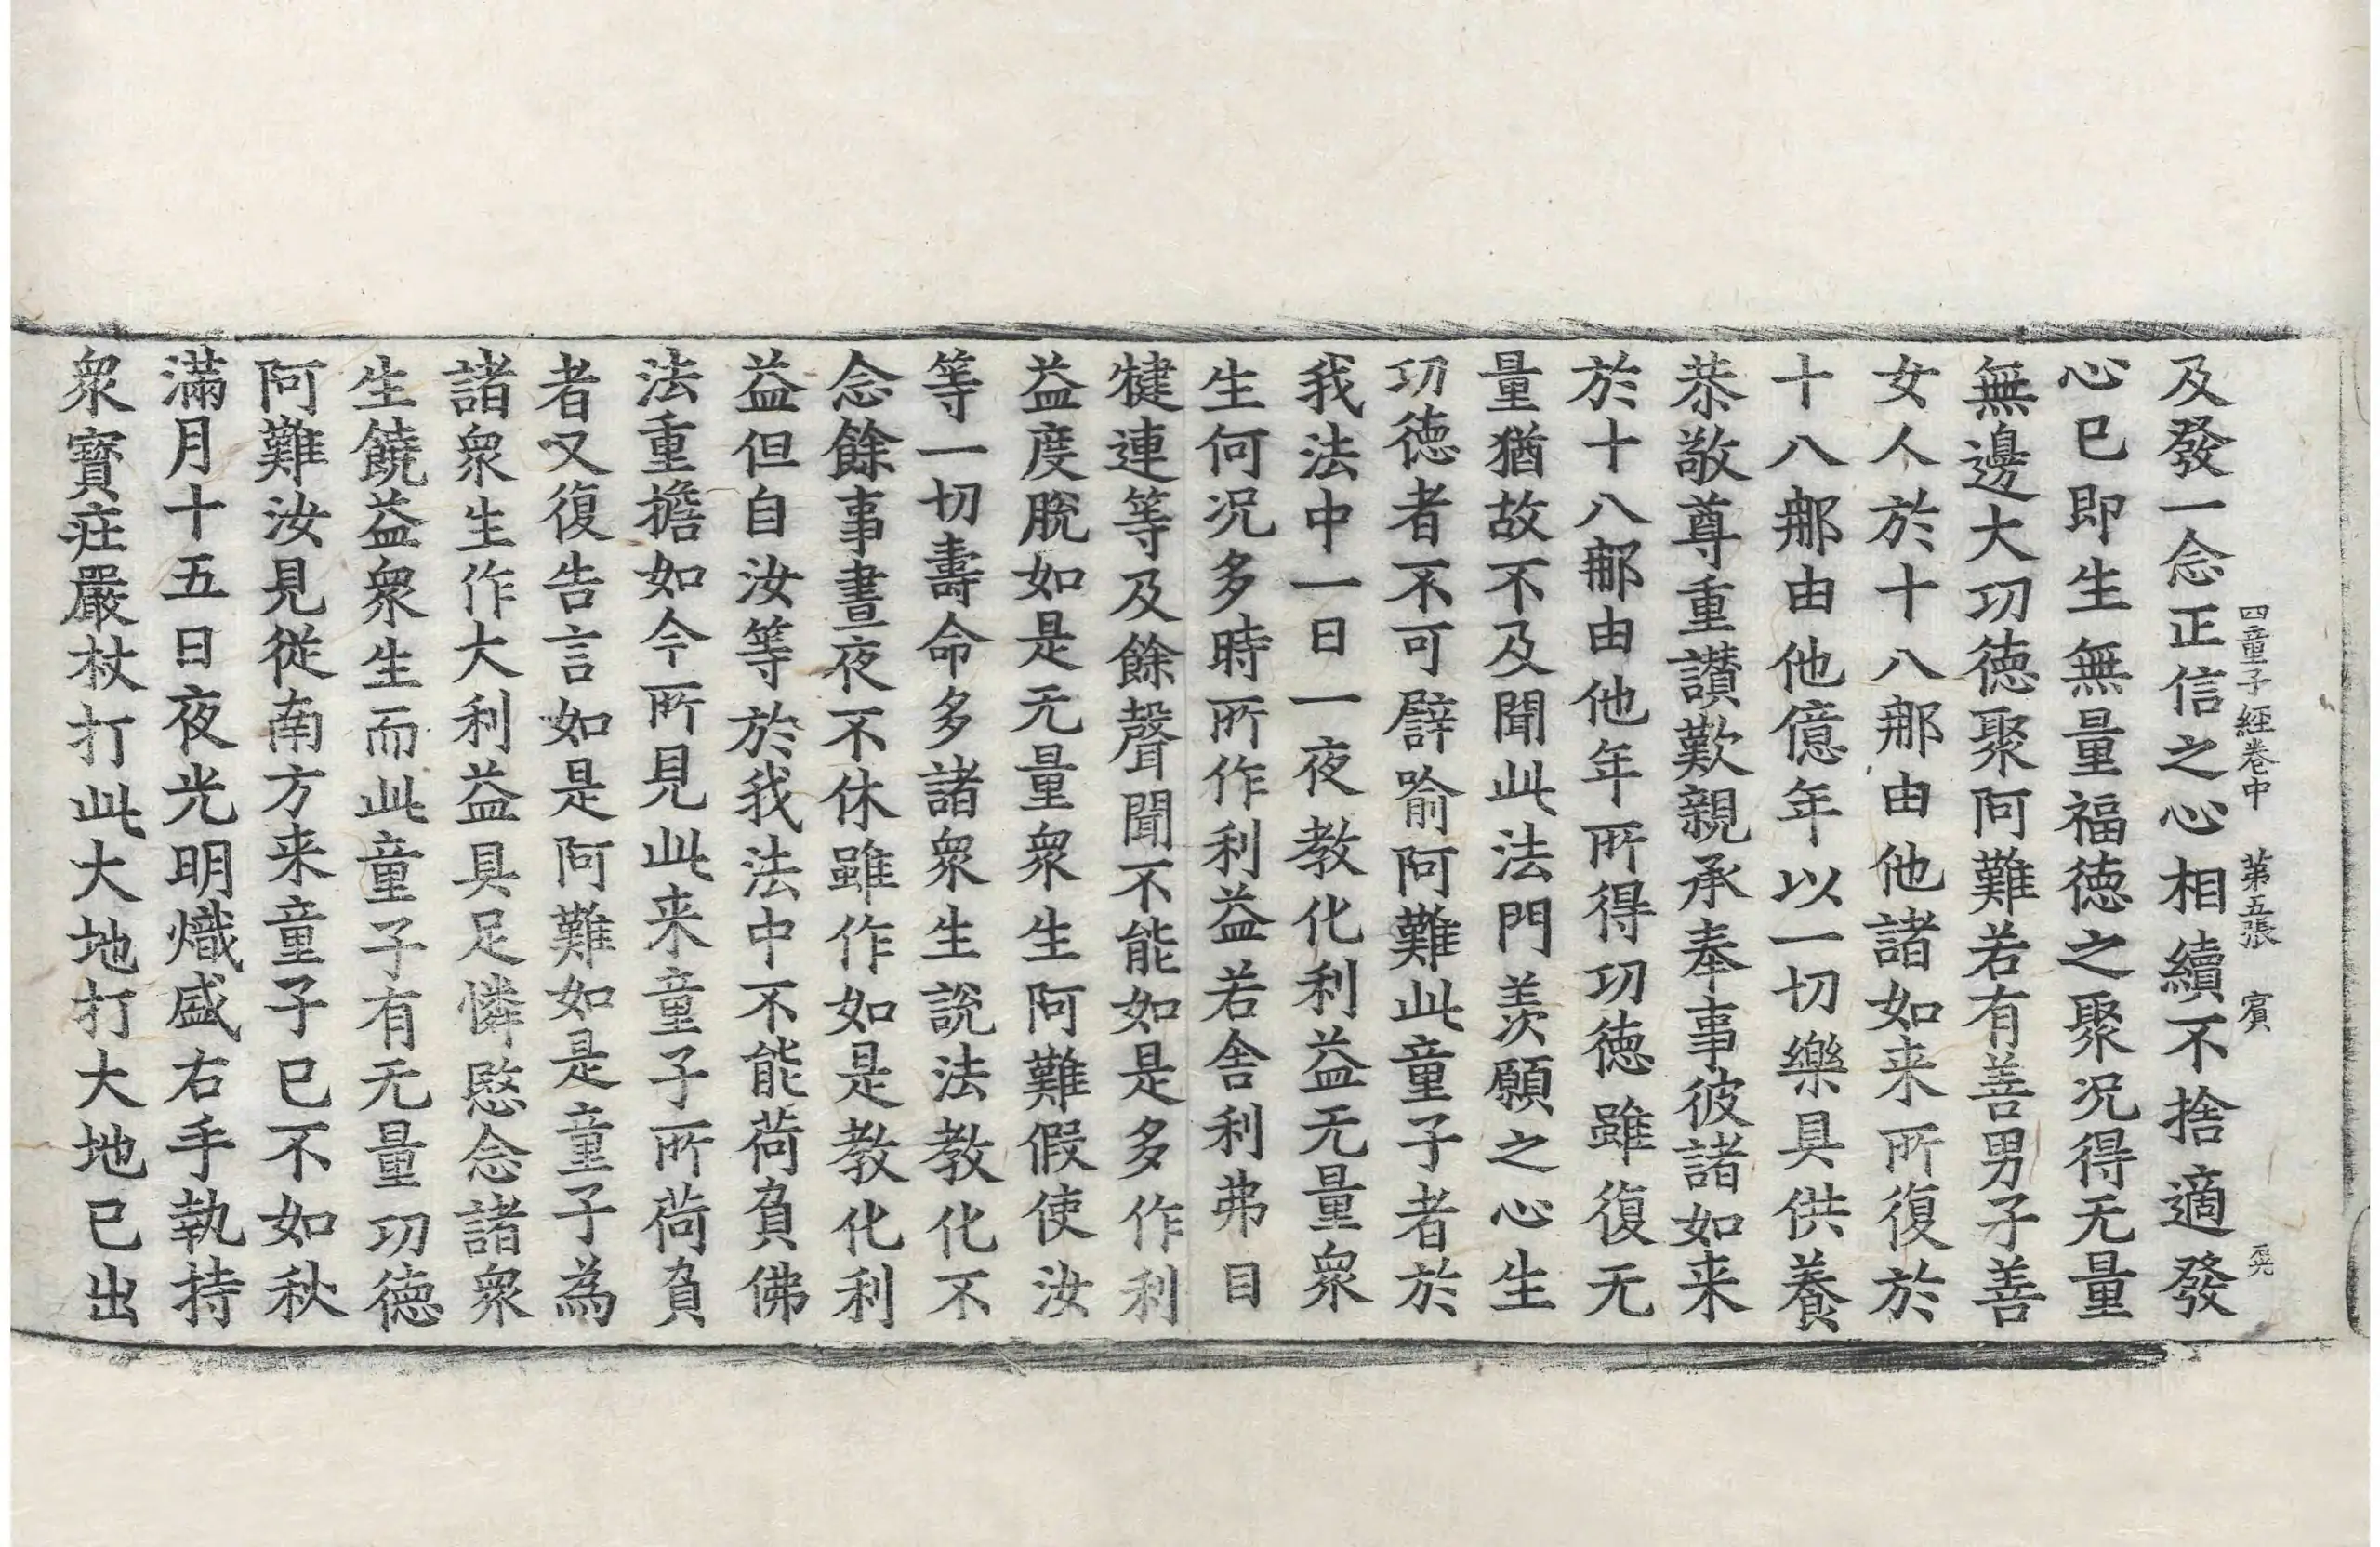 四童子経卷中　第五張　賓
及發一念正信之心相續不捨適發
心已即生無量福徳之聚况得无量
無邊大功徳聚阿難若有善男子善
女人於十八那由他諸如来所復於
十八那由他億年以一切樂具供養
恭敬尊重讃歎親承奉事彼諸如来
於十八那由他年所得功徳雖復无
量猶故不及聞此法門羡願之心生
功徳者不可譬喻阿難此童子者於
我法中一日一夜教化利益无量衆
生何况多時所作利益若舍利弗目
犍連等及餘聲聞不能如是多作利
益度脫如是无量衆生阿難假使汝
等一切壽命多諸衆生說法教化不
念餘事晝夜不休雖作如是教化利
益但自汝等於我法中不能荷負佛
法重擔如今所見此来童子所荷負
者又復告言如是阿難如是童子為
諸衆生作大利益具足憐愍念諸衆
生饒益衆生而此童子有无量功徳
阿難汝見從南方来童子已不如秋
滿月十五日夜光明熾盛右手執持
衆寳莊嚴杖打此大地打大地已出